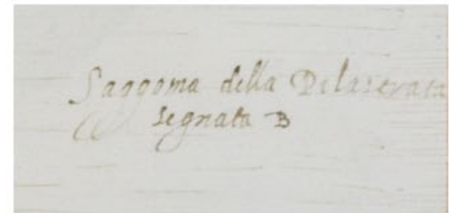 Saggoma della Pelastrata
segnata B